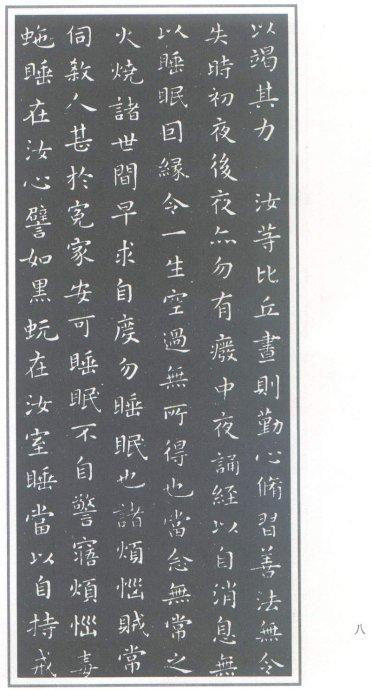 以竭其力 汝等比丘晝則勤心脩習善法無令
失時初夜後夜亦勿有癈中夜誦經以自消息無
以睡眠因緣令一生空過無所得也當念無常之
火燒諸世間早求自度勿睡眠也諸煩惱賊常
伺殺人甚於寃家安可睡眠不自警寤煩惱毒
虵睡在汝心譬如黑蚖在汝室睡當以自持戒
八